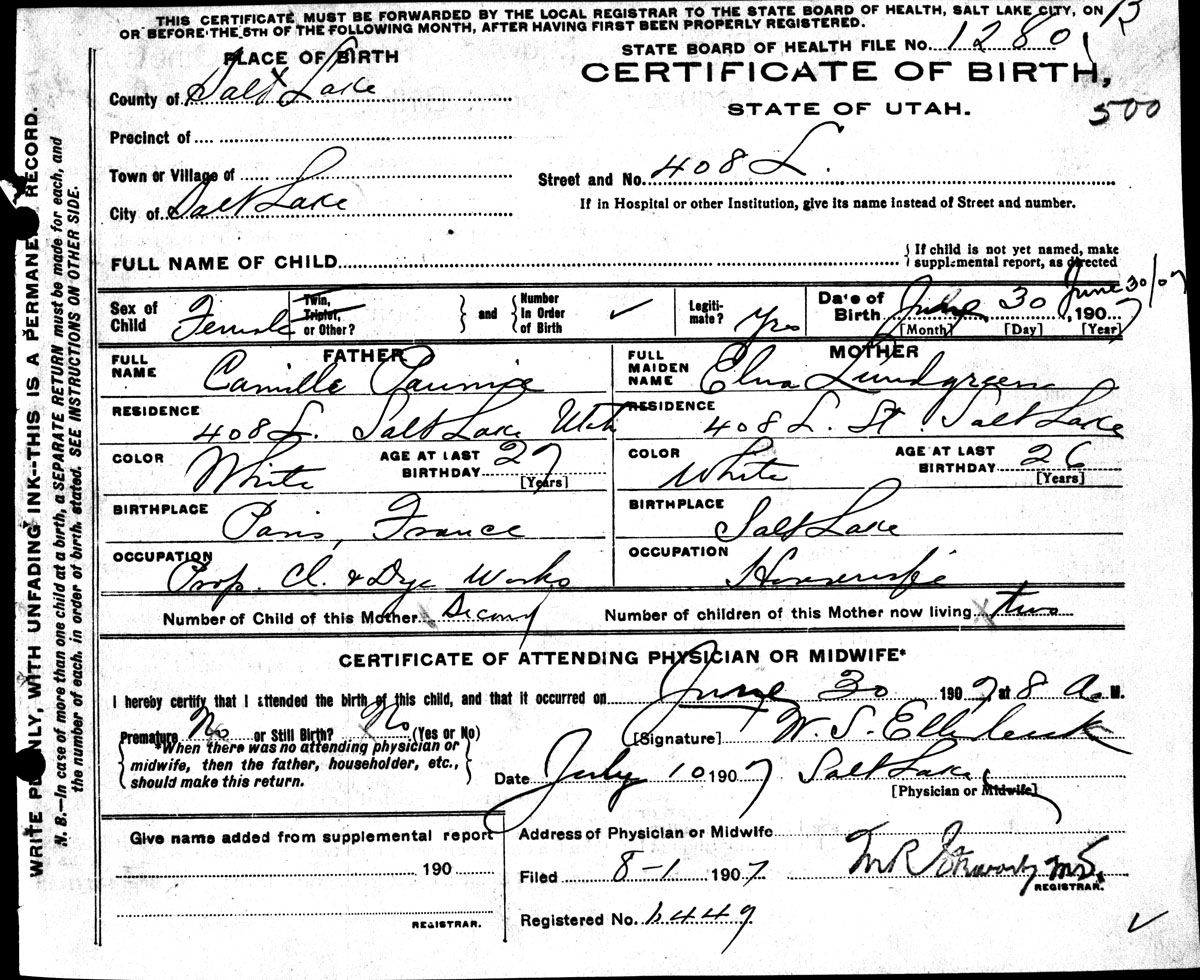 THIS CERTIFICATE MUST BE FORWARDED BY THE LOCAL REGISTRAR TO THE STATE BOARD OF HEALTH, SALT LAKE CITY, ON
OR BEFORE THE 5TH OF THE FOLLOWING MONTH, AFTER HAVING FIRST BEEN PROPERLY REGISTERED.
STATE BOARD OF HEALTH FILE NO. 1280
PLACE OF BIRTH
CERTIFICATE OF BIRTH,
STATE OF UTAH.
500
County of Salt Lake
Precinct of
Town or Village of
City of Salt Lake
Street and No. 408 L.
If in Hospital or other Institution, give its name instead of Street and number.
FULL NAME OF CHILD
If child is not yet named, make
supplemental report, as directed
Sex of Child Female
Twin, Triplet, or Other?
and
Number In Order of Birth ✓
Legitimate? Yes
Date of Birth June 30, 1907
June 30/07
[Month] [Day] [Year]
FATHER
FULL NAME Camille
RESIDENCE 408 L. Salt Lake Utah
COLOR White
AGE AT LAST BIRTHDAY 27 [Years]
BIRTHPLACE Paris, France
OCCUPATION Prop. Cl. & Dye Works
MOTHER
FULL MAIDEN NAME Elna Lundgreen
RESIDENCE 408 L. St. Salt Lake
COLOR White
AGE AT LAST BIRTHDAY 26 [Years]
BIRTHPLACE Salt Lake
OCCUPATION Housewife
Number of Child of this Mother Second
Number of children of this Mother now living two
CERTIFICATE OF ATTENDING PHYSICIAN OR MIDWIFE*
I hereby certify that I attended the birth of this child, and that it occurred on June 30 1907 at 8 A. M.
Premature No or Still Birth? No (Yes or No)
[Signature] W. S. Ellerbeck
*When there was no attending physician or
midwife, then the father, householder, etc.,
should make this return.
Date July 10 1907 Salt Lake
[Physician or Midwife]
Give name added from supplemental report
190
REGISTRAR.
Address of Physician or Midwife
Filed 8-1 1907
REGISTRAR.
Registered No.
✓
WRITE PLAINLY, WITH UNFADING INK--THIS IS A PERMANENT RECORD.
N. B.—In case of more than one child at a birth, a SEPARATE RETURN must be made for each, and
the number of each, in order of birth, stated. SEE INSTRUCTIONS ON OTHER SIDE.